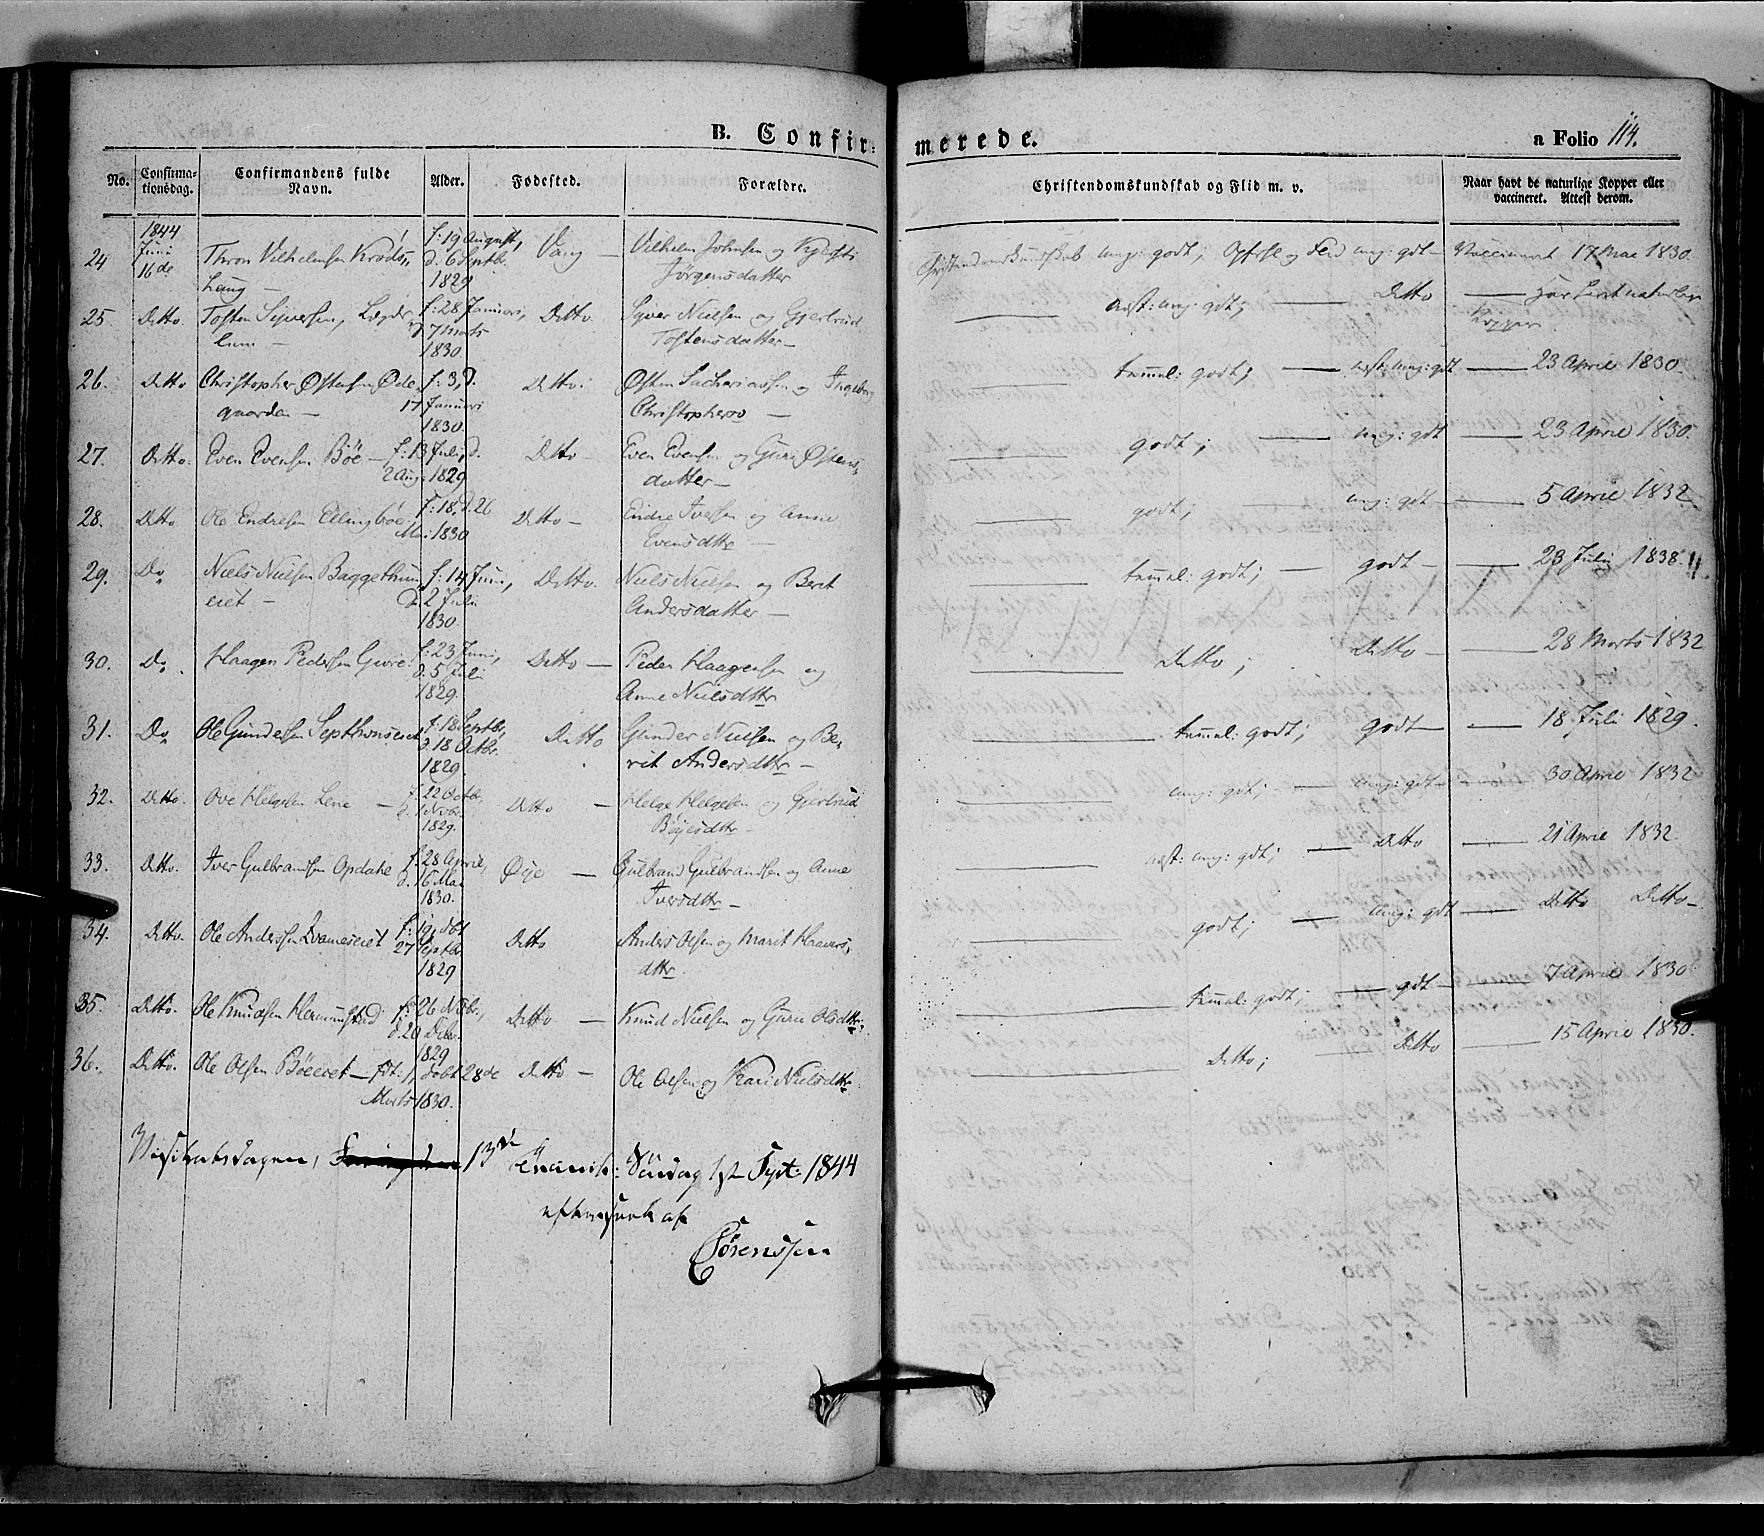 B. Confir=
merede.
a Folio 114.
No.
Confirma-
tionsdag.
Confirmandens fulde
Navn.
Alder.
Fødested.
Forældre.
Christendomskundskab og Flid m. v.
Naar havt de naturlige Kopper eller
vaccineret. Attest derom.
1844
24 Juni 16de Thron Vilhelmsen Krøds,
f: 19 August, d. 6 Septbr. 1829 Vang Vilhelm Johnsen og
Jørgensdatter
Christendomskundskab mg: godt; og Flid mg: gdt Vaccineret 17 Mai 1830
25 Ditto. Tosten Syversen,
f: 28 Januari, 7 Marts 1830. Ditto. Syver Nielsen og Gjertrud
Tostensdatter
næst: mg: gdt; Ditto naturlige
Kopper
26. Ditto Christopher Østensen Øde
gaarden f: 3, d. 17 Januari 1830. Ditto. Østen Sachariassen og Ingeborg
Christophersd
temmel: godt; næst: mg: gdt 23 April 1830.
27. Ditto. Even Evensen Bøe f: 13 Juli, d. 2 Aug: 1829 Ditto Even Evensen og Guri Østens-
datter
godt; mg: gdt 23 April 1830.
28. Ditto Ole Endresen Ellingbøe f: 18, d. 26 Mai 1830 Ditto Endre Iversen og Anne
Evensdtr
godt; mg: gdt 5 April 1832
29. Do Niels Nielsen Baggethun
eiet f: 14 Juni, d. 2 Juli 1830 Ditto. Niels Nielsen og Berit
Andersdatter
temmel: godt; godt 23 Juli 1838.
30. Do. Haagen Pedersen f: 23 Juni, d. 5 Juli 1829. Ditto Peder Haagensen og
Anne Nielsdtr
Ditto; Ditto 28 Marts 1832
31. Do Ole Gundersen f: 18 Septbr, d. 18 Octbr. 1829. Ditto Gunder Nielsen og Be-
rit Andersdtr
temmel: godt; godt 18 Juli 1829.
32. Ditto. Ove Helgesen Lene f. 22 Octbr, d. 1 Novbr. 1829. Ditto Helge Helgesen og Gjertrud
Bøyesdtr
mg: gdt; mg: gdt 30 April 1832
33. Ditto. Iver Gulbrandsen Opdahl f. 28 April, d. 16 Mai 1830. Øye Gulbrand Gulbrandsen og Anne
Iversdtr
næst: mg: gdt; Ditto 21 April 1832.
34. Ditto. Ole Andersen Kvameseiet f: 19, døbt 27 Septbr. 1829 Ditto Anders Olsen og Marit Haavers,
dttr
godt; mg: gdt Ditto Ditto
35. Ditto. Ole Knudsen Hermunstad f: 26 Novbr., d. 20 Debr. 1829 Ditto Knud Nielsen og Guri Olsdtr.
temmel: godt; gdt 7 April 1830
36. Ditto. Ole Olsen Bøeeiet fød: 1, døbt 28de Marts 1830. Ditto Ole Olsen og Kari Nielsdtr
Ditto; Ditto 15 April 1830.
Visitatsdagen, 13de Søndag 1st Sept: 1844
efterseet af
Sørenssen